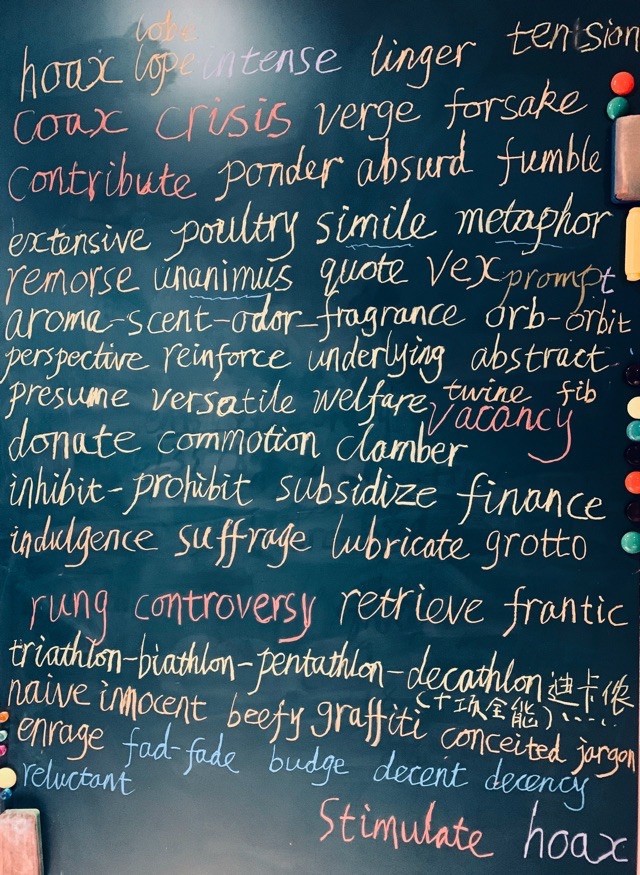 lobe
hoax lope intense linger tension
coax crisis verge forsake
contribute ponder absurd fumble
extensive poultry simile metaphor
remorse unanimus quote vex prompt
aroma-scent-odor-fragrance orb-orbit
perspective reinforce underlying abstract
presume versatile welfare twine fib
vacancy
donate commotion clamber
inhibit-prohibit subsidize finance
indulgence suffrage lubricate grotto
rung controversy retrieve frantic
triathlon-biathlon-pentathlon-decathlon 迪卡侬
(十项全能)......
naive innocent beefy graffiti conceited jargon
enrage fad-fade budge decent decency
reluctant
Stimulate hoax